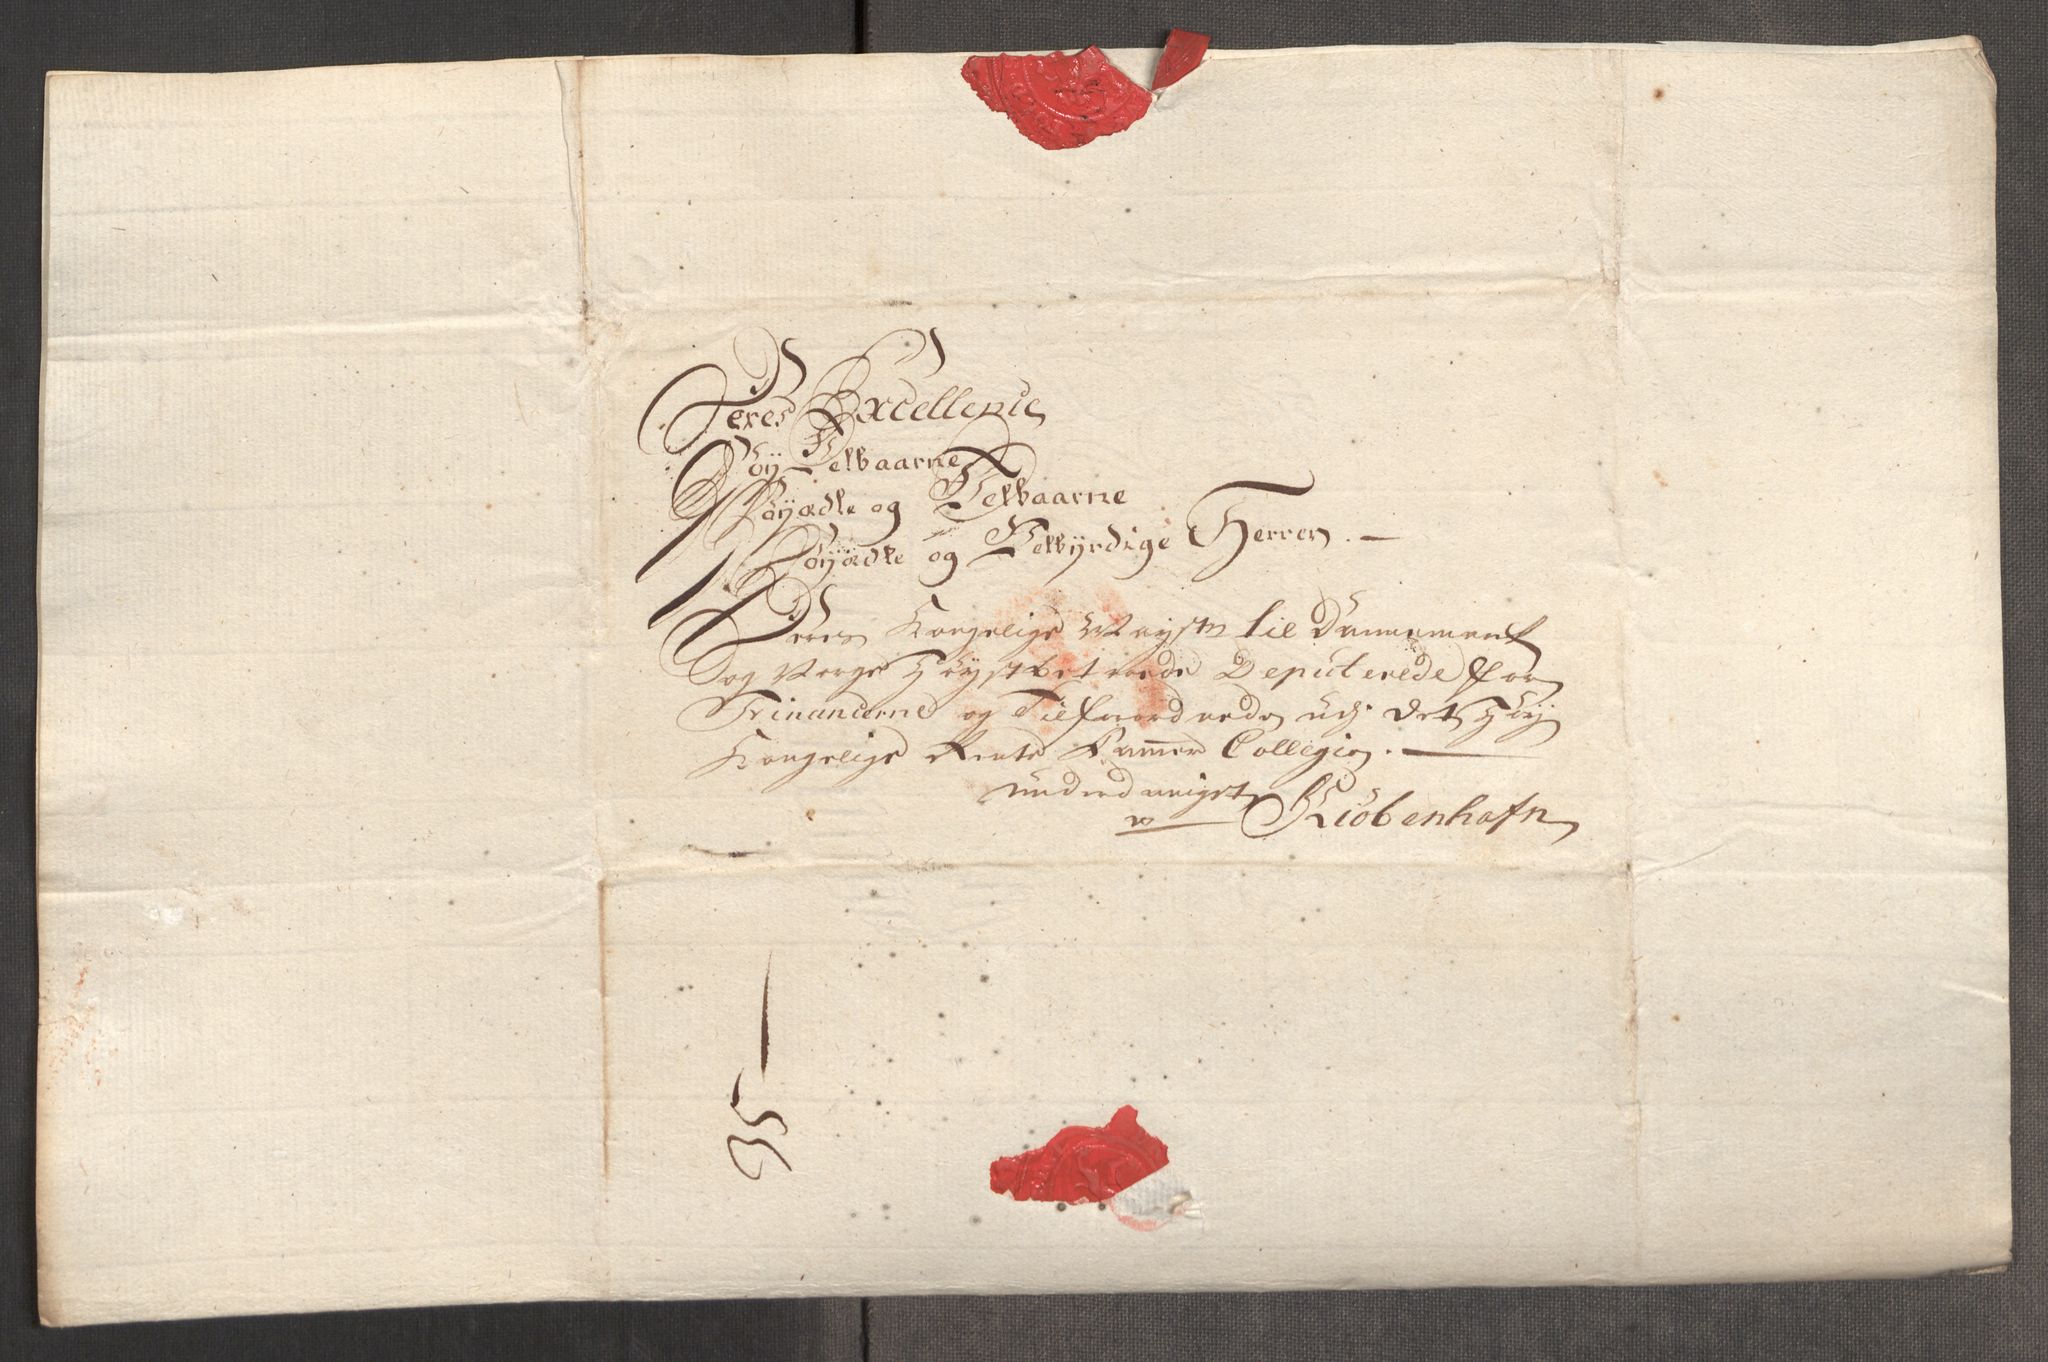 Deres Excellence
Höy Velbaarne
Höyædle og Velbaarne
Höyædle og Velbyrdige Herrer. —
Deres Kongelige Mayst: til Dannemark
og Norge Höystbetroede Deputerede for
Financerne og Tilforordnede udj det Höy
Kongelige Rente Kammer Collegio. —
underdanigst
Kiöbenhafn
95